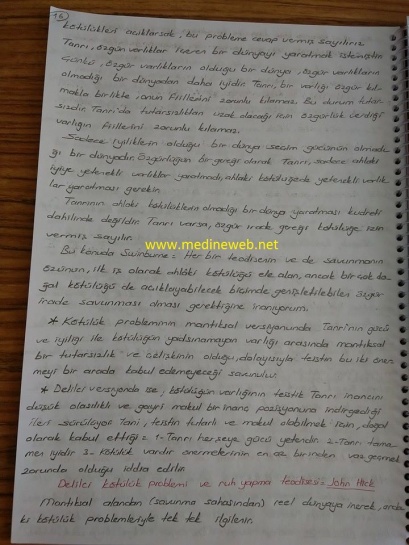 15
kötülükleri açıklarsak, bu probleme cevap vermiş sayılırız.
Tanrı, özgün varlıklar içeren bir dünyayı yaratmak istemiştir.
Çünkü, özgür varlıkların olduğu bir dünya, özgür varlıkların
olmadığı bir dünyadan daha iyidir. Tanrı, bir varlığı özgür kıl-
makla birlikte, onun fiillerini zorunlu kılamaz. Bu durum tutar-
sızdır. Tanrı'da tutarsızlıktan uzak olacağı için özgürlük verdiği
varlığın fiillerini zorunlu kılamaz.
Sadece iyiliklerin olduğu bir dünya seçim gücünün olmadı-
ğı bir dünyadır. Özgürlüğün bir gereği olarak Tanrı, sadece ahlaki
iyiye yetenekli varlıklar yaratmadı, ahlaki kötülüğede yetenekli varlık-
lar yaratması gerekir.
Tanrının ahlaki kötülüklerin olmadığı bir dünya yaratması kudreti
dahilinde değildir. Tanrı varsa, özgür irade gereği kötülüğe izin
vermiş sayılır.
www.medineweb.net
Bu konuda Swinburne = Her bir teodisenin ve de savunmanın
özünün, ilk iş olarak ahlâki kötülüğü ele alan, ancak birçok do-
ğal kötülüğü de açıklayabilecek biçimde genişletilebilen özgür
irade savunması olması gerektiğine inanıyorum.
* Kötülük probleminin mantıksal versiyonunda Tanrı'nın gücü
ve iyiliği ile kötülüğün yadsınamayan varlığı arasında mantıksal
bir tutarsızlık ve çelişkinin olduğu, dolayısıyla teistin bu iki öner-
meyi bir arada kabul edemeyeceği savunulur.
* Delilci versiyonda ise, kötülüğün varlığının teistik Tanrı inancını
düşük olasılıklı ve gayri makul bir inanç pozisyonuna indirgediği
ileri sürülüyor. Yani, teistin tutarlı ve makul olabilmek için, doğal
olarak kabul ettiği = 1-Tanrı herşeye gücü yetendir. 2-Tanrı tama-
men iyidir 3- Kötülük vardır önermelerinin en az birinden vazgeçmek
zorunda olduğu iddia edilir.
Delilci kötülük problemi ve ruh yapma teodisesi = John Hick
(Mantıksal alandan (savunma sahasından) reel dünyaya inerek,
ki kötülük problemleriyle tek tek ilgilenir.